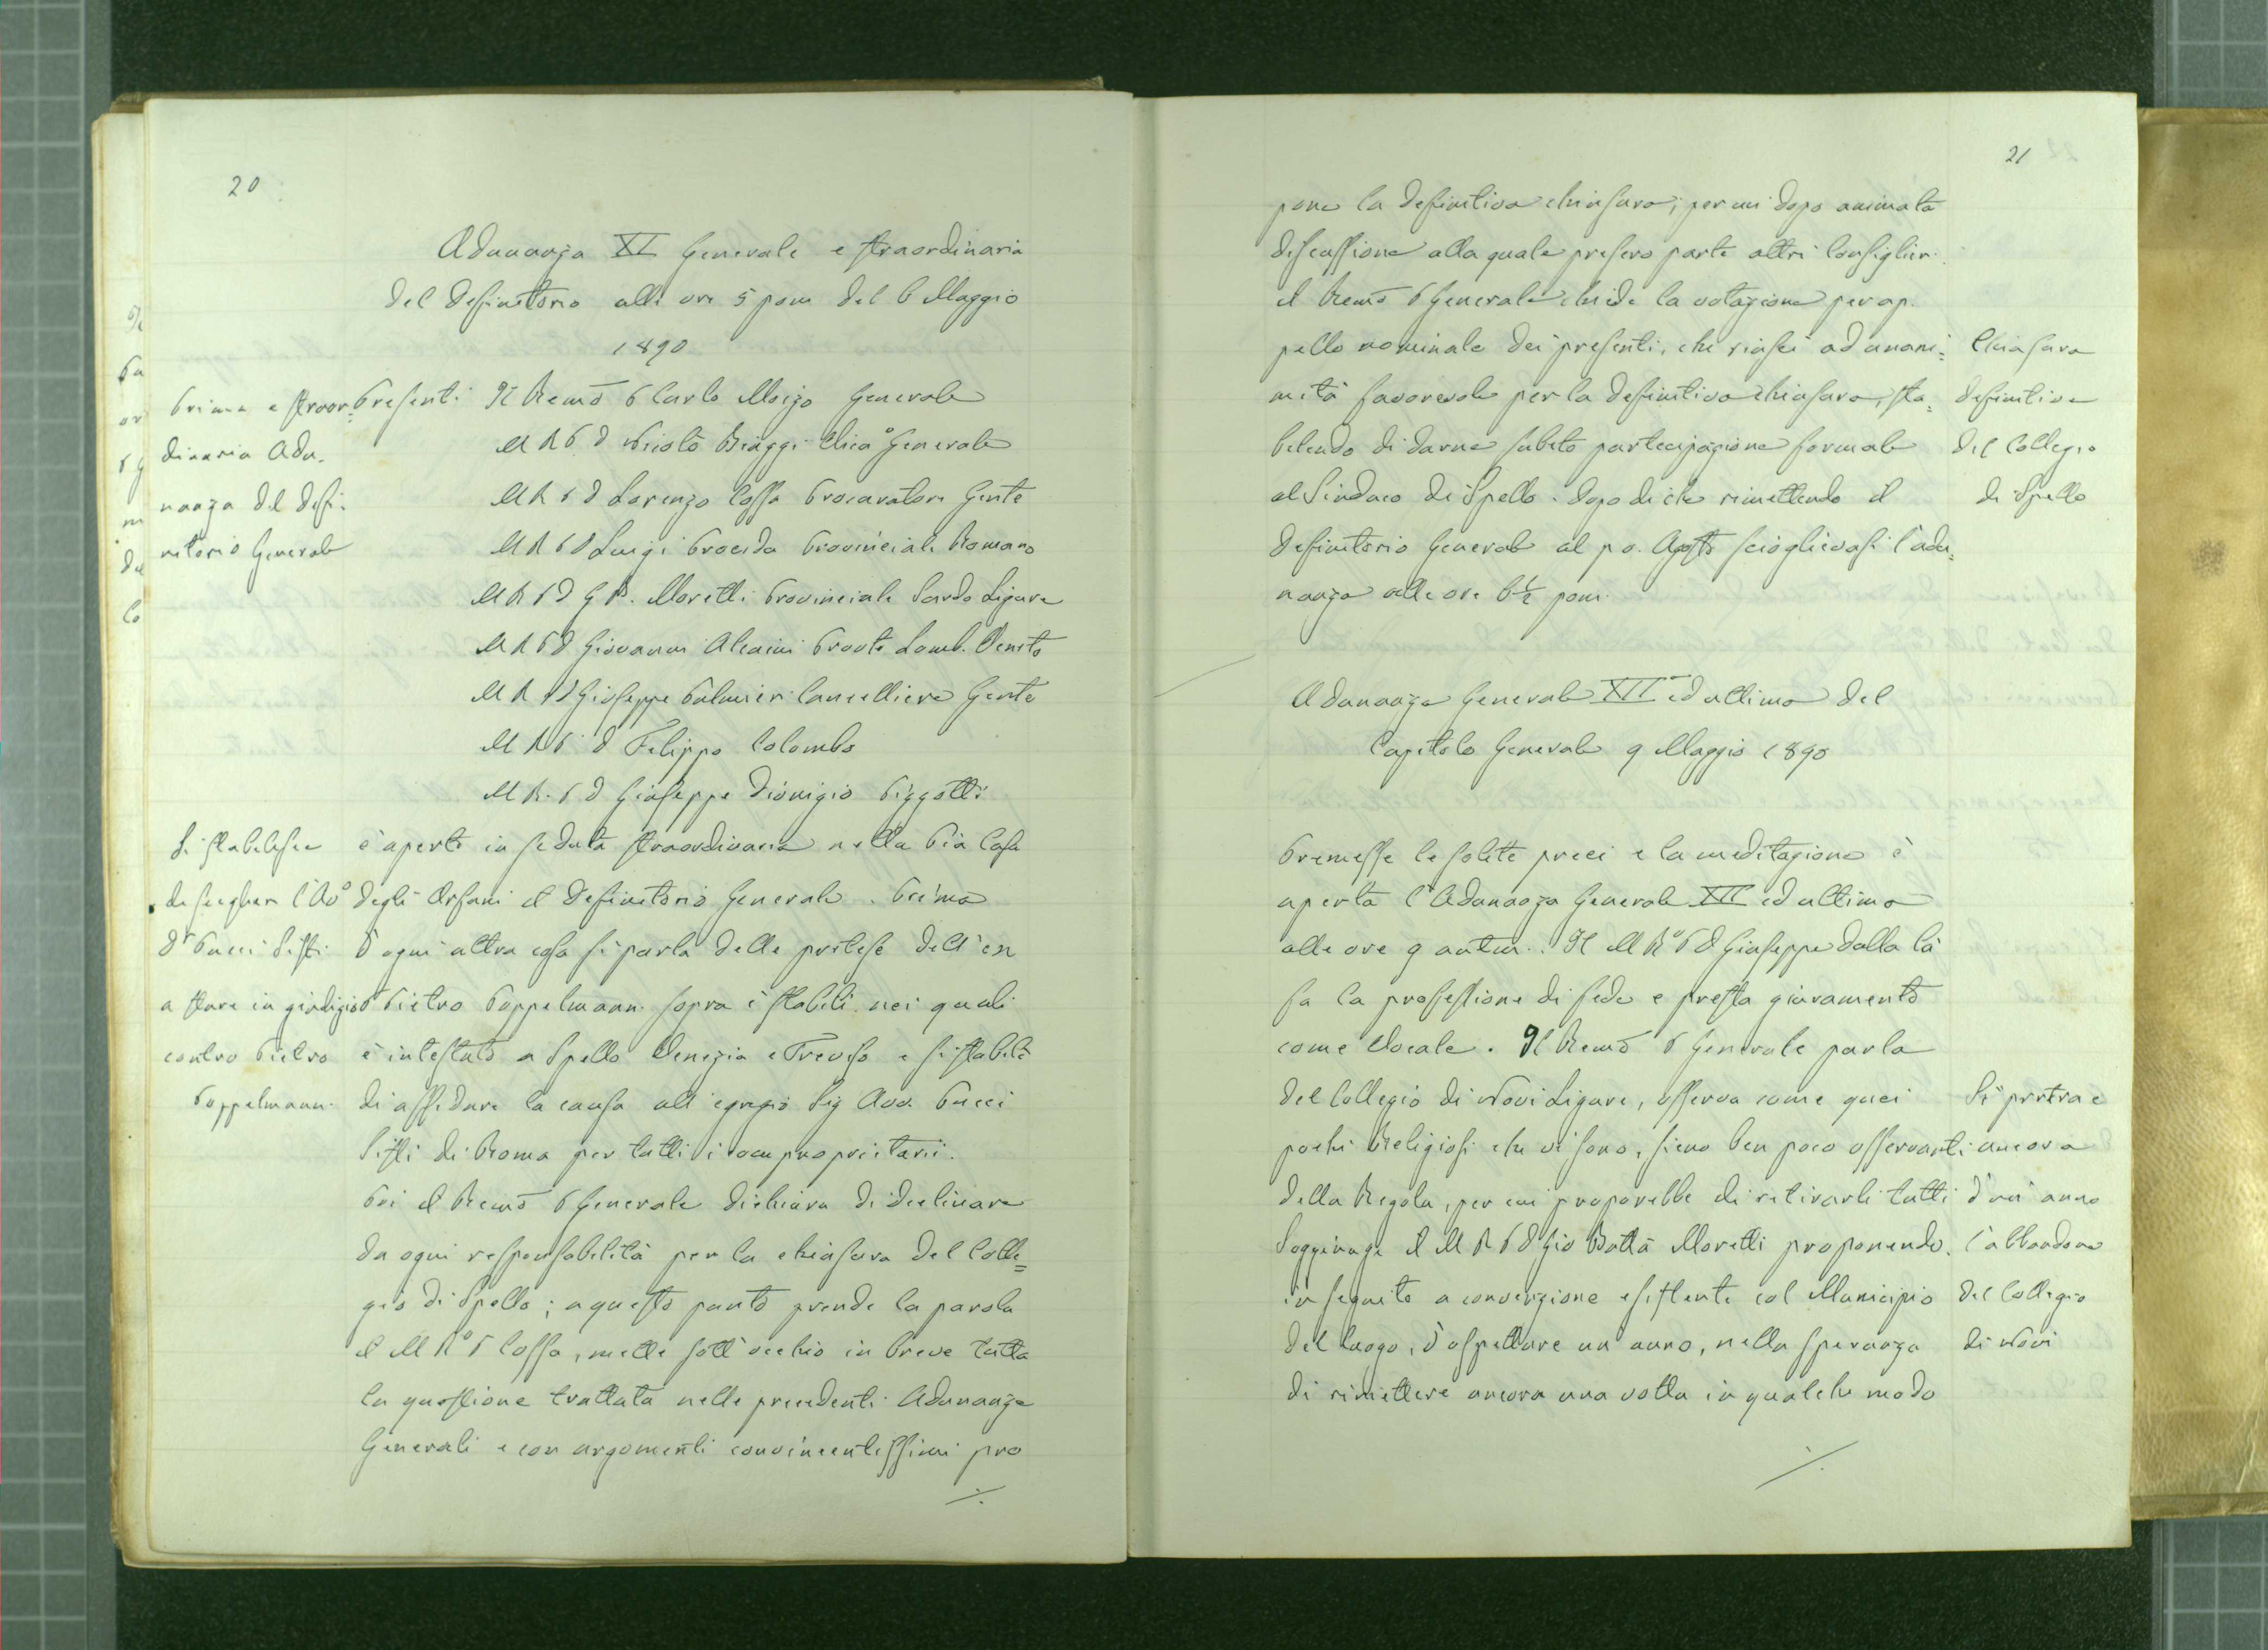 20
Adunanza XI Generale e straordinaria
del Definitorio alle ore 5 pom del 6 Maggio
1890
Prima e straor=
dinaria Adu.
nanza del Defi.
nitorio Generale
Presenti Il Remo P Carlo Moizo Generale
M R P D Nicolò Biaggi Vico Generale
M R P D Lorenzo Cossa Procuratore Gente
M R P D Luigi Procida Provinciale Romano
M R P D G B. Moretti Provinciale Sardo Ligure
M R P D Giovanni Alcaini Provle Lomb. Veneto
M R P D Giuseppe Palmieri Cancelliere Gente
M R P D Filippo Colombo
M R. P D Giuseppe Dionigio Pizzotti
Si stabilisce
da scegliere l'Avo
Dr Pucci Sisti
a stare in giudizio
contro Pietro
Poppelmann.
è aperto in seduta straordinaria nella Pia Casa
degli Orfani il Definitorio Generale. Prima
d'ogni altra cosa si parla delle pretese dell'ex
P Pietro Poppelmann sopra i stabili nei quali
è intestato a Spello Venezia e Treviso e si stabilì
di affidare la causa all'egregio Sig Avv. Pucci
Sisti di Roma per tutti i comproprietarii.
Poi il Remo P Generale dichiara di declinare
da ogni responsabilità per la chiusura del Colle=
gio di Spello; a questo punto prende la parola
il M Ro P Cossa, mette sott'occhio in breve tutta
la questione trattata nelle precedenti Adunanze
Generali e con argomenti convincentissimi pro
./.
21
pone la definitiva chiusura; per cui dopo animata
discussione alla quale presero parte altri Consiglieri
il Remo P Generale chiede la votazione per ap.
pello nominale dei presenti, che riuscì ad unani=
mità favorevole per la definitiva chiusura, sta=
bilendo di darne subito partecipazione formale
al Sindaco di Spello. Dopo di che rimettendo il
Definitorio Generale al p. v. Agosto scioglievasi l'adu=
nanza alle ore 6 1/2 pom.
Chiusura
definitiva
del Collegio
di Spello
Adunanza Generale XII ed ultima del
Capitolo Generale 9 Maggio 1890
Premesse le solite preci e la meditazione è
aperta l'Adunanza Generale XII ed ultima
alle ore 9 antim. Il M Ro P D Giuseppe dalla Cà
fa la professione di fede e presta giuramento
come Vocale. Il Remo P Generale parla
del Collegio di Novi Ligure, osserva come quei
pochi Religiosi che vi sono, sieno ben poco osservanti
della Regola, per cui proporrebbe di ritirarli tutti
Soggiunge il M R P D Gio Batta Moretti proponendo,
in seguito a convenzione esistente col Municipio
del luogo, d'aspettare un anno, nella speranza
di rimettere ancora una volta in qualche modo
Si protrae
ancora
d'un anno
l'abbandono
del Collegio
di Novi
./.